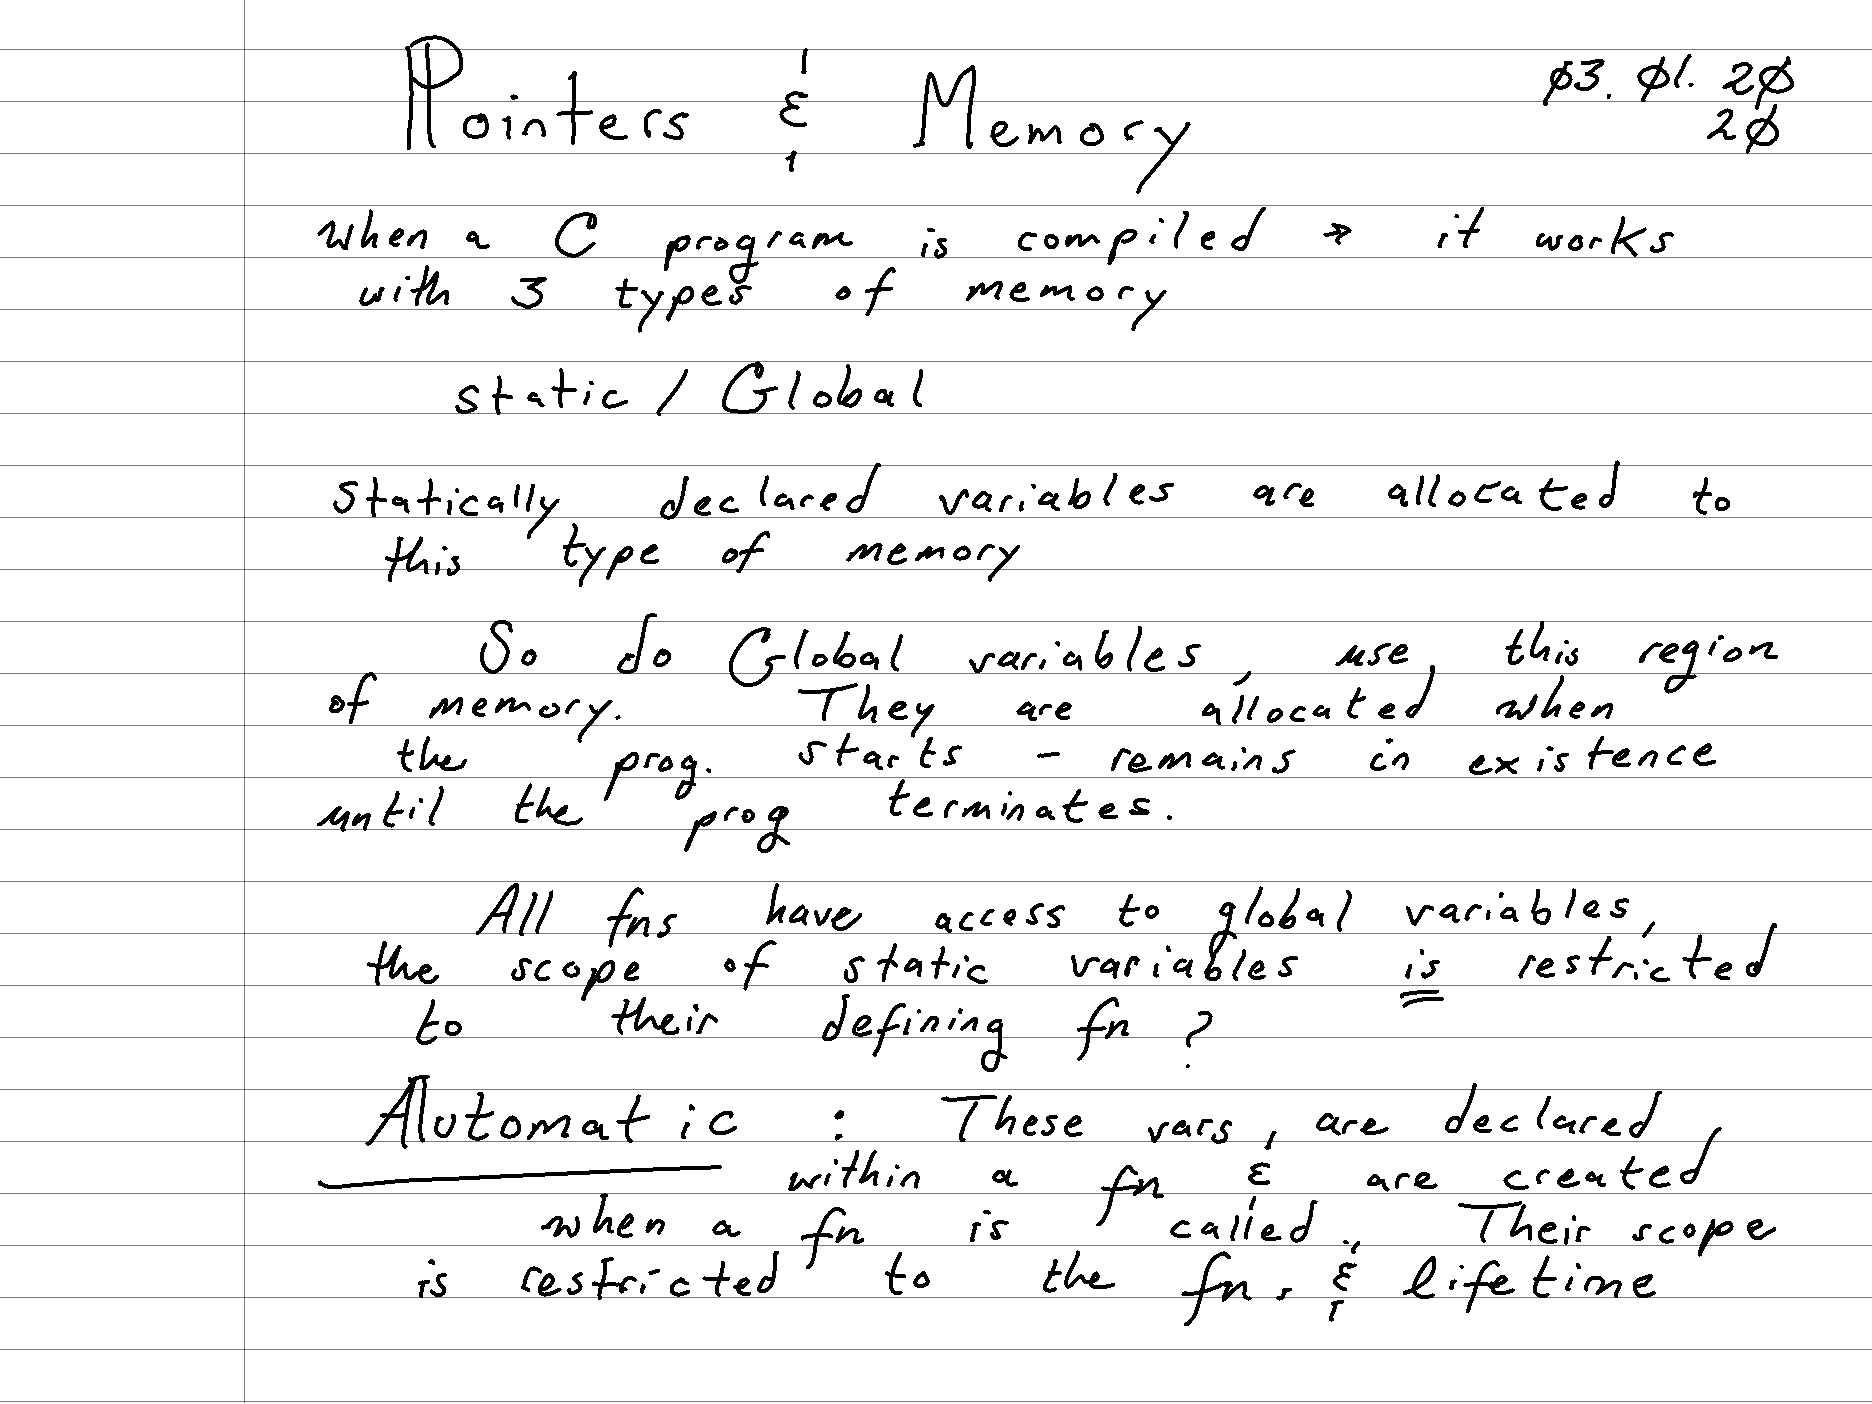 Pointers & Memory
03. 01. 20
20
when a C program is compiled → it works
with 3 types of memory
static / Global
statically declared variables are allocated to
this type of memory
So do Global variables, use, this region
of memory. They are allocated when
the prog. starts - remains in existence
until the prog terminates.
All fns have access to global variables,
the scope of static variables is restricted
to their defining fn ?
Automatic : These vars, are declared
within a fn & are created
when a fn is called., Their scope
is restricted to the fn. & lifetime